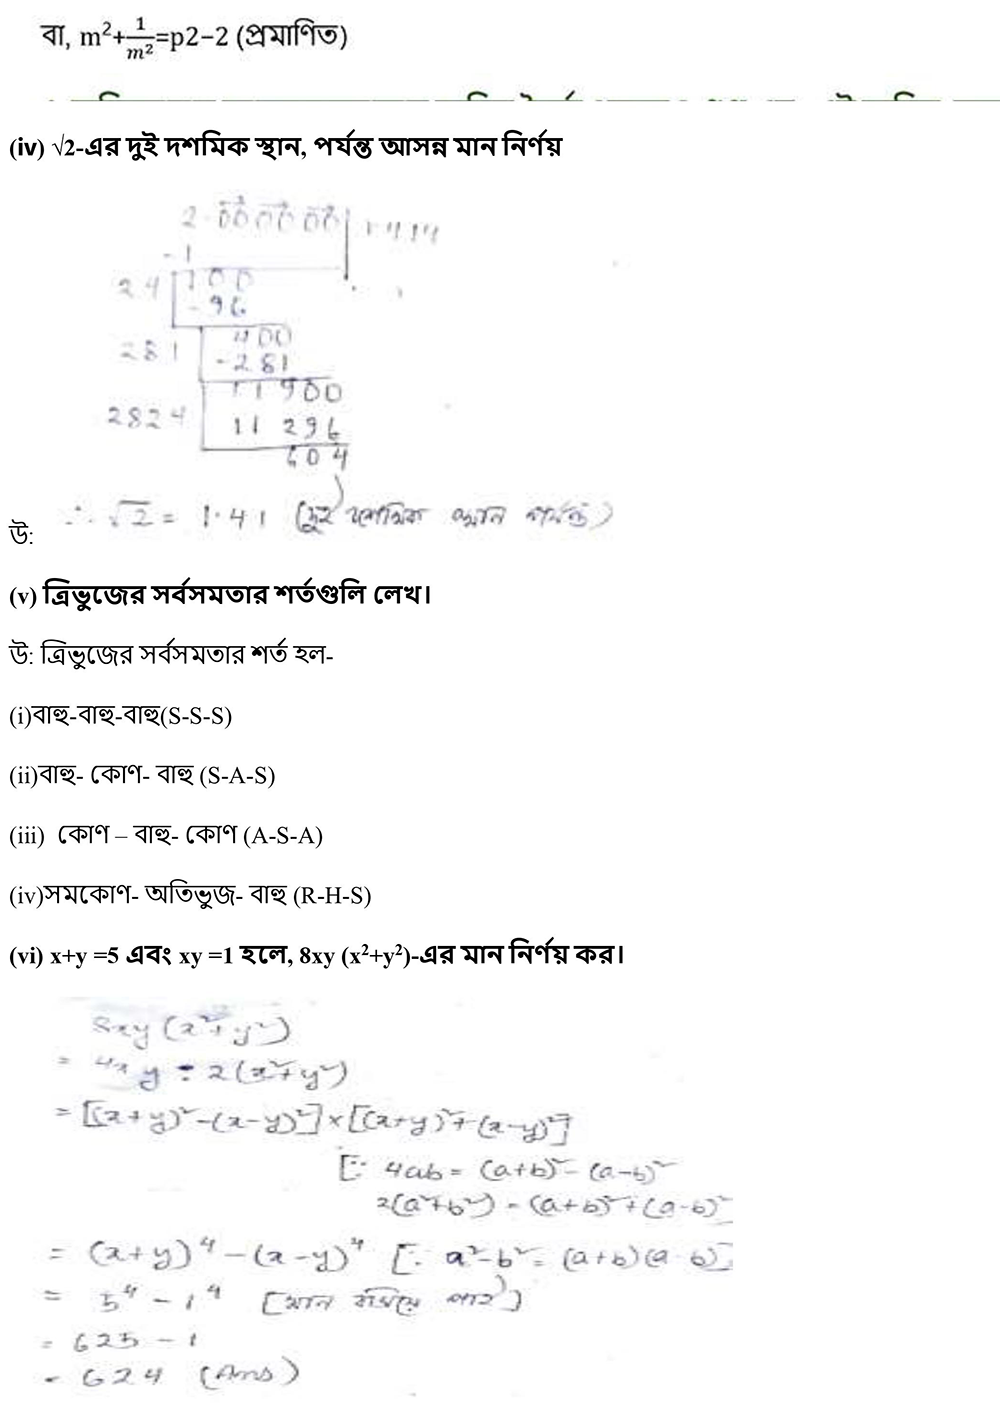 বা, m²+1/m²=p2−2 (প্রমাণিত)
(iv) √2-এর দুই দশমিক স্থান, পর্যন্ত আসন্ন মান নির্ণয়
2.00 00 00 | 1.414
-1
24 | 100
-96
281 | 400
-281
2824 | 11900
11296
604
উ: ∴ √2 = 1.41 (দুই দশমিক স্থান পর্যন্ত)
(v) ত্রিভুজের সর্বসমতার শর্তগুলি লেখ।
উ: ত্রিভুজের সর্বসমতার শর্ত হল-
(i)বাহু-বাহু-বাহু(S-S-S)
(ii)বাহু- কোণ- বাহু (S-A-S)
(iii) কোণ – বাহু- কোণ (A-S-A)
(iv)সমকোণ- অতিভুজ- বাহু (R-H-S)
(vi) x+y =5 এবং xy =1 হলে, 8xy (x²+y²)-এর মান নির্ণয় কর।
8xy (x²+y²)
= 4xy × 2(x²+y²)
= [(x+y)²-(x-y)²]×[(x+y)²+(x-y)²]
[∵ 4ab = (a+b)² - (a-b)²
2(a²+b²) = (a+b)²+(a-b)²
= (x+y)⁴ - (x-y)⁴ [∵ a²-b² = (a+b)(a-b)]
= 5⁴ - 1⁴ [মান বসিয়ে পাই]
= 625 - 1
= 624 (Ans)